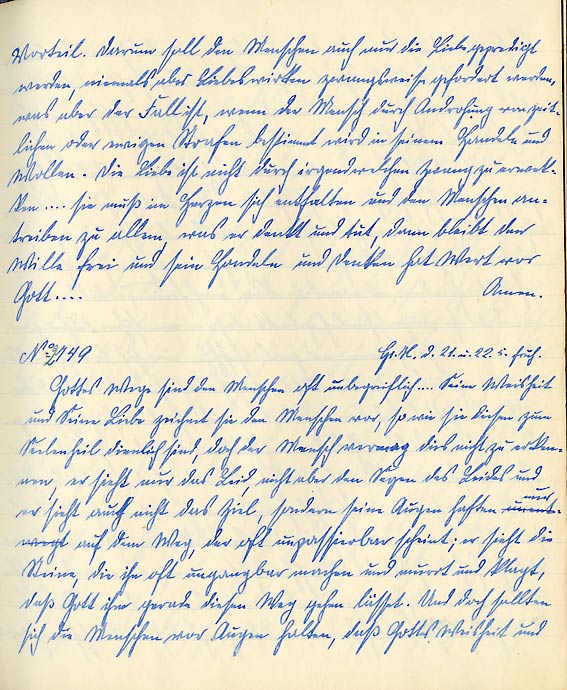 Vorteil. Darum soll den Menschen auch nur die Liebe gepredigt
werden, niemals aber Liebeswirken zwangsweise gefordert werden,
was aber der Fall ist, wenn der Mensch durch Androhung von zeit-
lichen oder ewigen Strafen bestimmt wird in seinem Handeln und
Wollen. Die Liebe ist nicht durch irgendwelchen Zwang zu erwek-
ken .... sie muß im Herzen sich entfalten und den Menschen an-
treiben zu allem, was er denkt und tut, dann bleibt der
Wille frei und sein Handeln und Denken hat Wert vor
Gott .... Amen.
No 2749 21. u. 22. 5. früh.
Gottes Wege sind den Menschen oft unbegreiflich .... Seine Weisheit
und Seine Liebe zeichnet sie den Menschen vor, so wie sie diesen zum
Seelenheil dienlich sind, doch der Mensch vermag dies nicht zu erken-
nen, er sieht nur das Leid, nicht aber den Segen des Leides und
er sieht auch nicht das Ziel, sondern seine Augen haften nur
auf dem Weg, der oft unpassierbar scheint; er sieht die
Steine, die ihn oft ungangbar machen und murrt und klagt,
daß Gott ihn gerade diesen Weg gehen lässet. Und doch sollten
sich die Menschen vor Augen halten, daß Gottes Weisheit und